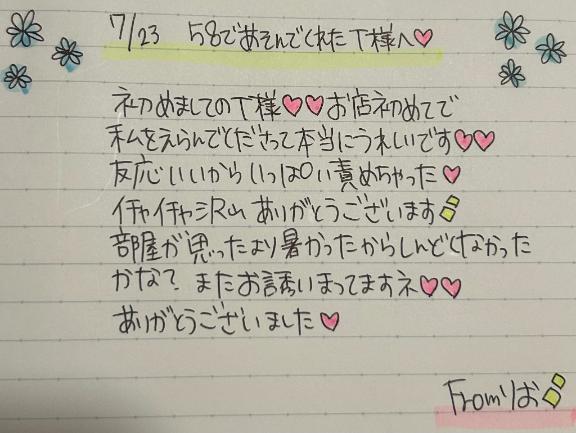 7/23 58であそんでくれたT様へ♡
初めましてのT様♡♡お店初めてで
私をえらんでくださって本当にうれしいです♡♡
反応いいからいっぱい責めちゃった♡
イチャイチャ沢山ありがとうございます
部屋が思ったより暑かったからしんどくなかった
かな?またお誘いまってますネ♡♡
ありがとうございました♡
Fromりお